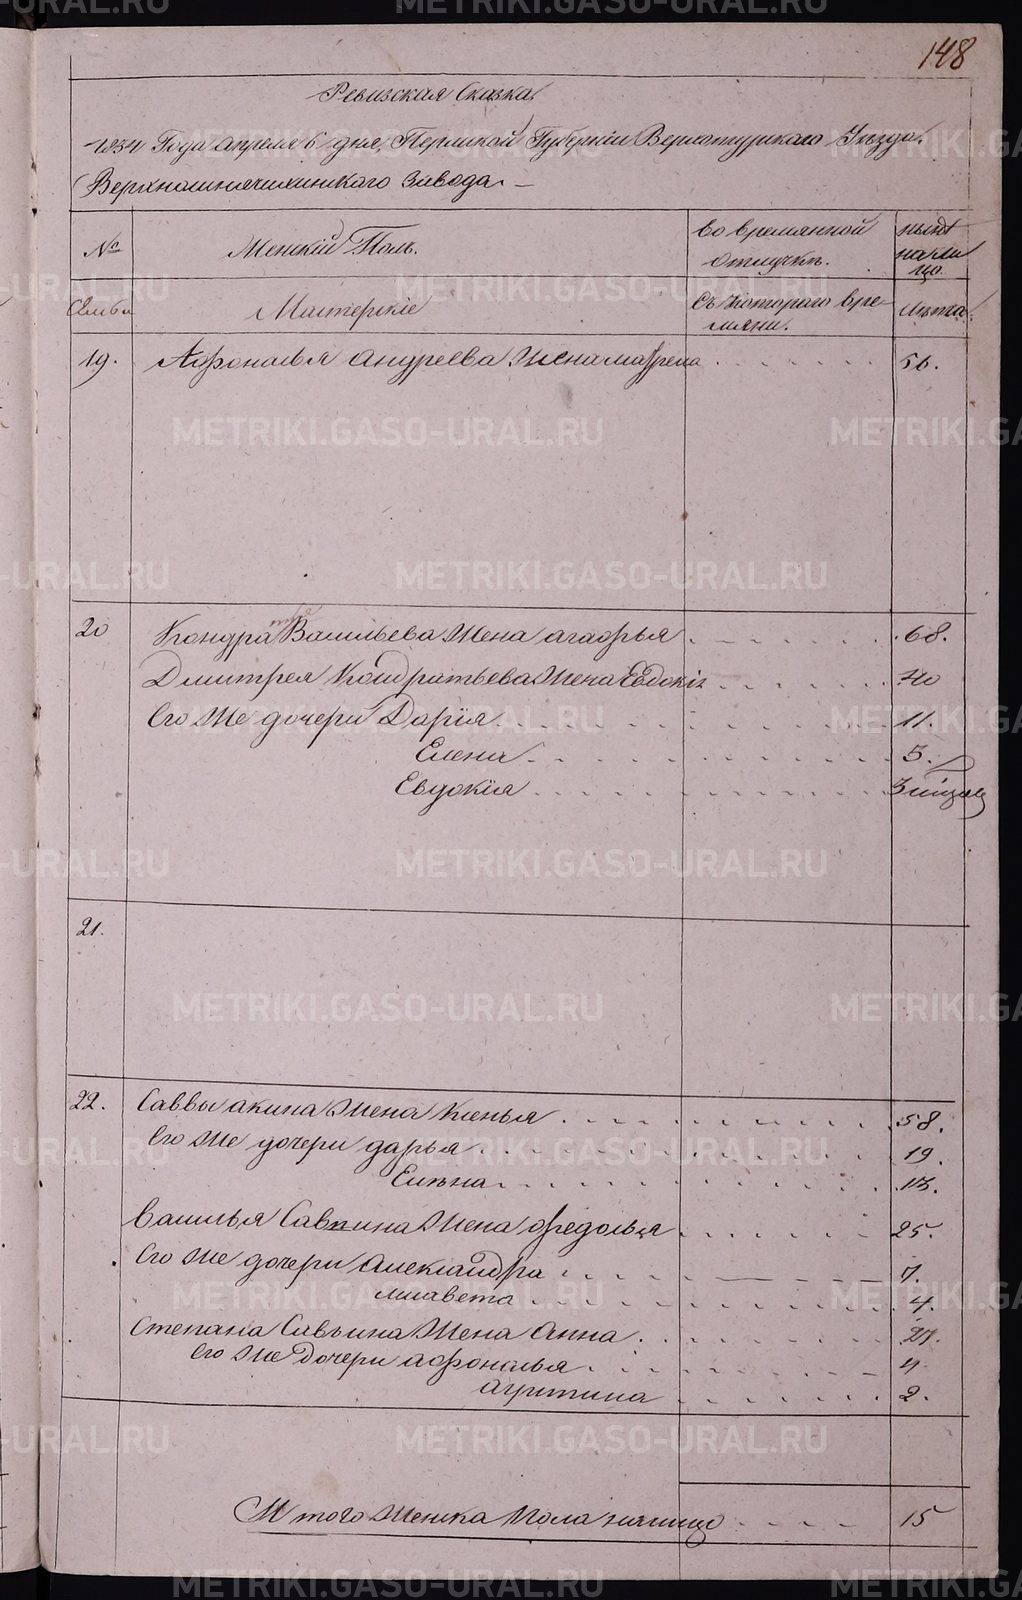 148
Ревизская Сказка
1834 Года апреля 6 дня, Пермской Губернии Верхотурскаго Уезда.
Верхнесинячихинскаго Завода. —
№ Женский Полъ. во временной отлучкѣ. ныне на лицо.
Семьи Мастерские Съ котораго времяни. Лѣта.
19. Афонасья андреева Жена мафрена 56.
20 Кондратья Васильева Жена агафья 68.
Дмитрея Кондратьева Жена Евдокия 40
Его же дочери Дария 11.
Елена 5.
Евдокия
21.
22. Саввы акина Жена Ксенья 58.
Его же дочери дарья 19.
Елѣна 13.
Василья Савина Жена федосья 25.
Его же дочери александра 7.
лисавета 4.
Степана Савина Жена Анна 27.
Его же Дочери афонасья 4
2.
Итого Женска Пола налицо 15
METRIKI.GASO-URAL.RU